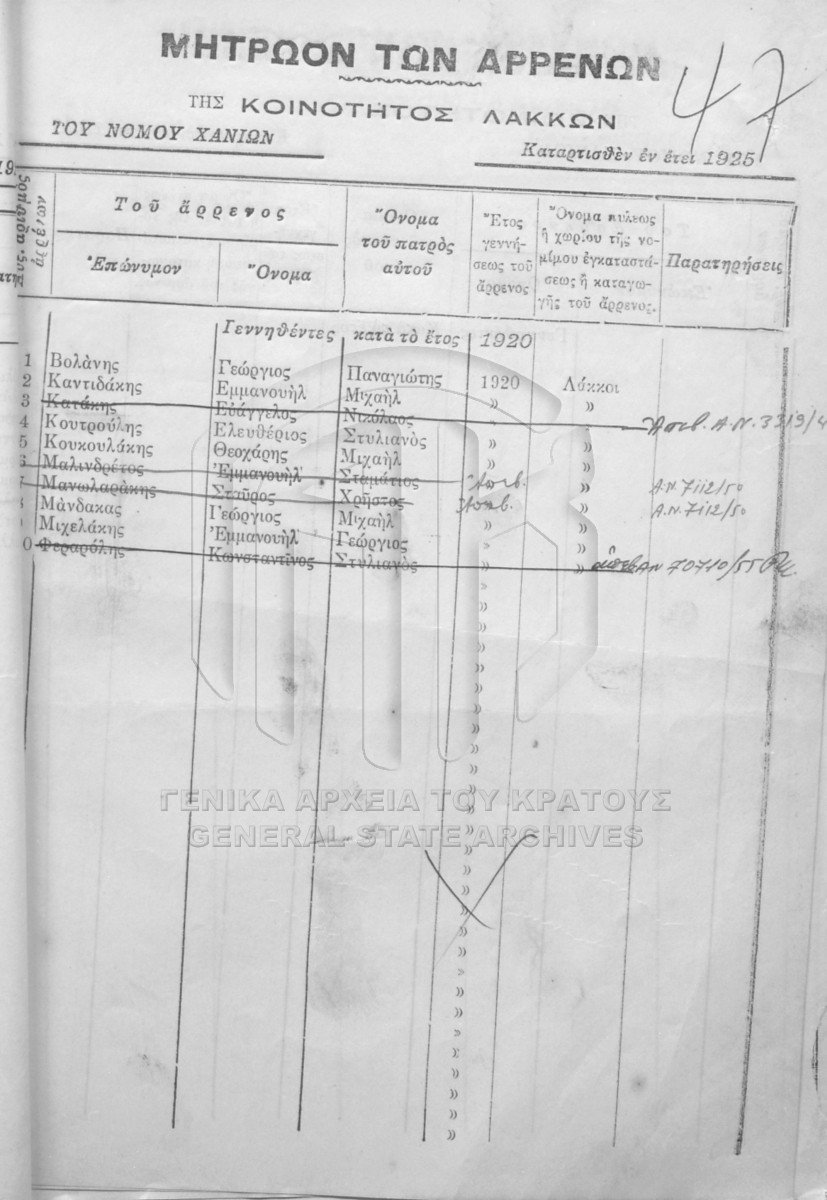 ΜΗΤΡΩΟΝ ΤΩΝ ΑΡΡΕΝΩΝ
47
ΤΗΣ ΚΟΙΝΟΤΗΤΟΣ ΛΑΚΚΩΝ
ΤΟΥ ΝΟΜΟΥ ΧΑΝΙΩΝ
Καταρτισθὲν ἐν ἔτει 1925
Τοῦ ἄρρενος
Ἐπώνυμον
Ὄνομα
Ὄνομα
τοῦ πατρὸς
αὐτοῦ
Ἔτος
γεννή-
σεως τοῦ
ἄρρενος
Ὄνομα πόλεως
ἢ χωρίου τῆς νο-
μίμου ἐγκαταστά-
σεως ἢ καταγω-
γῆς τοῦ ἄρρενος.
Παρατηρήσεις
Γεννηθέντες κατὰ τὸ ἔτος 1920
1 Βολάνης Γεώργιος Παναγιώτης 1920 Λάκκοι
2 Καντιδάκης Εμμανουὴλ Μιχαὴλ » »
3 Κατάκης Εὐάγγελος Νικόλαος » » Α.Ν.
4 Κουτρούλης Ελευθέριος Στυλιανὸς » »
5 Κουκουλάκης Θεοχάρης Μιχαὴλ » »
Μαλινδρέτος Ἐμμανουὴλ Σταμάτιος » Α.Ν. 7112/50
Μανωλαράκης Σταῦρος Χρῆστος » Α.Ν. 7112/50
Μάνδακας Γεώργιος Μιχαὴλ » »
Μιχελάκης Ἐμμανουὴλ Γεώργιος » »
0 Φεραρόλης Κωνσταντῖνος Στυλιανὸς » » ΑΝ 70710/55
ΓΕΝΙΚΑ ΑΡΧΕΙΑ ΤΟΥ ΚΡΑΤΟΥΣ
GENERAL STATE ARCHIVES